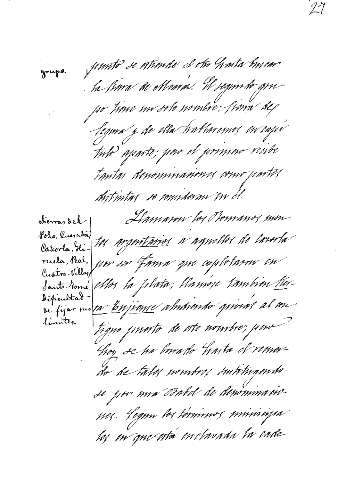 27
grupo.
puerto se estiende el otro hasta buscar
la Sierra de Almería. El segundo gru-
po tiene un solo nombre; Sierra de
Segura y de ella hablaremos en capí-
tulo aparte; pero el primero recibe
tantas denominaciones como partes
distintas se consideran en él.
Sierras del
Pozo, Quesada,
Cazorla, Iri-
uela,
Cuatro-Villas
Santo-Tomé
Dificultad
de fijar sus
límites.
Llamaron los Romanos mon-
tes argentarios á aquellos de Cazorla
por la fama que explotaron en
ellos la plata; llamóse tambien
aludiendo quizás al an-
tiguo puerto de este nombre; pero
hoy se ha borrado hasta el recuer-
do de tales nombres sustituyendo
se por una Babel de denominacio-
nes. Segun los términos municipa
les en que está enclavada la cade-